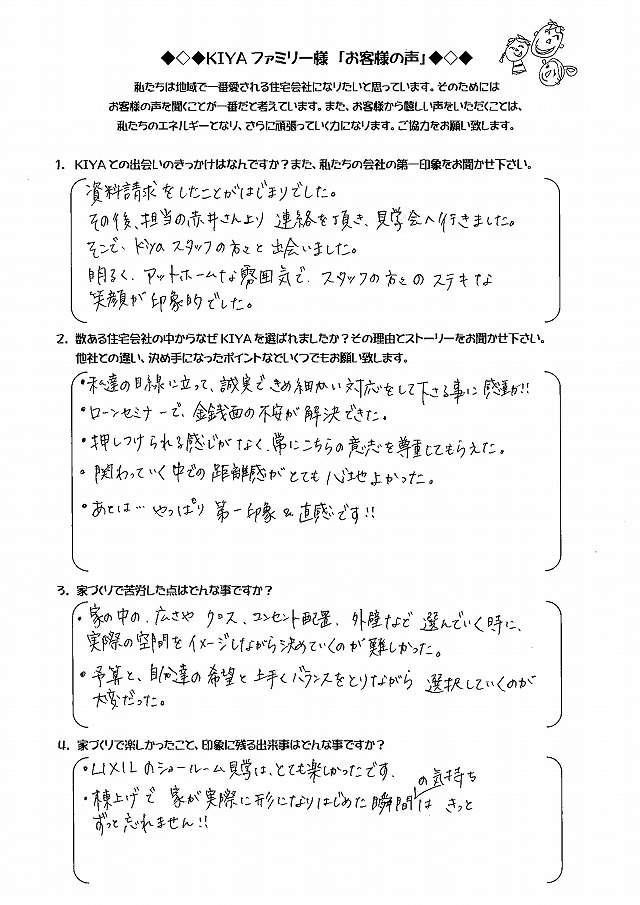 ◆◇◆KIYAファミリー様「お客様の声」◆◇◆
私たちは地域で一番愛される住宅会社になりたいと思っています。そのためには
お客様の声を聞くことが一番だと考えています。また、お客様から嬉しい声をいただくことは、
私たちのエネルギーとなり、さらに頑張っていく力になります。ご協力をお願い致します。
1. KIYAとの出会いのきっかけはなんですか？また、私たちの会社の第一印象をお聞かせ下さい。
資料請求をしたことがはじまりでした。
その後、担当の赤井さんより 連絡を頂き、見学会へ行きました。
そこで、Kiyaスタッフの方々と出会いました。
明るく、アットホームな雰囲気で、スタッフの方々のステキな
笑顔が印象的でした。
2. 数ある住宅会社の中からなぜKIYAを選ばれましたか？その理由とストーリーをお聞かせ下さい。
他社との違い、決め手になったポイントなどいくつでもお願い致します。
・私達の目線に立って、誠実できめ細かい対応をして下さる事に感激が!!
・ローンセミナーで、金銭面の不安が解決できた。
・押しつけられる感じがなく、常にこちらの意志を尊重してもらえた。
・関わっていく中での距離感がとても心地よかった。
・あとは… やっぱり 第一印象&直感です!!
3. 家づくりで苦労した点はどんな事ですか？
・家の中の、広さや クロス、コンセント配置、外壁など 選んでいく時に、
実際の空間をイメージしながら決めていくのが難しかった。
・予算と、自分達の希望と上手くバランスをとりながら 選択していくのが
大変だった。
4. 家づくりで楽しかったこと、印象に残る出来事はどんな事ですか？
・LIXILのショールーム見学は、とても楽しかったです。
・棟上げで 家が実際に形になりはじめた瞬間の気持ちは きっと
ずっと忘れません!!